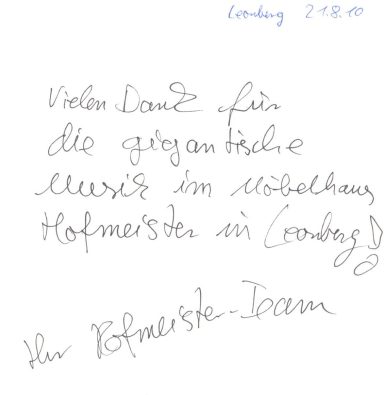 Leonberg 21.8.10
Vielen Dank für
die gigantische
Musik im Möbelhaus
Hofmeister in Leonberg!
Ihr Hofmeister-Team